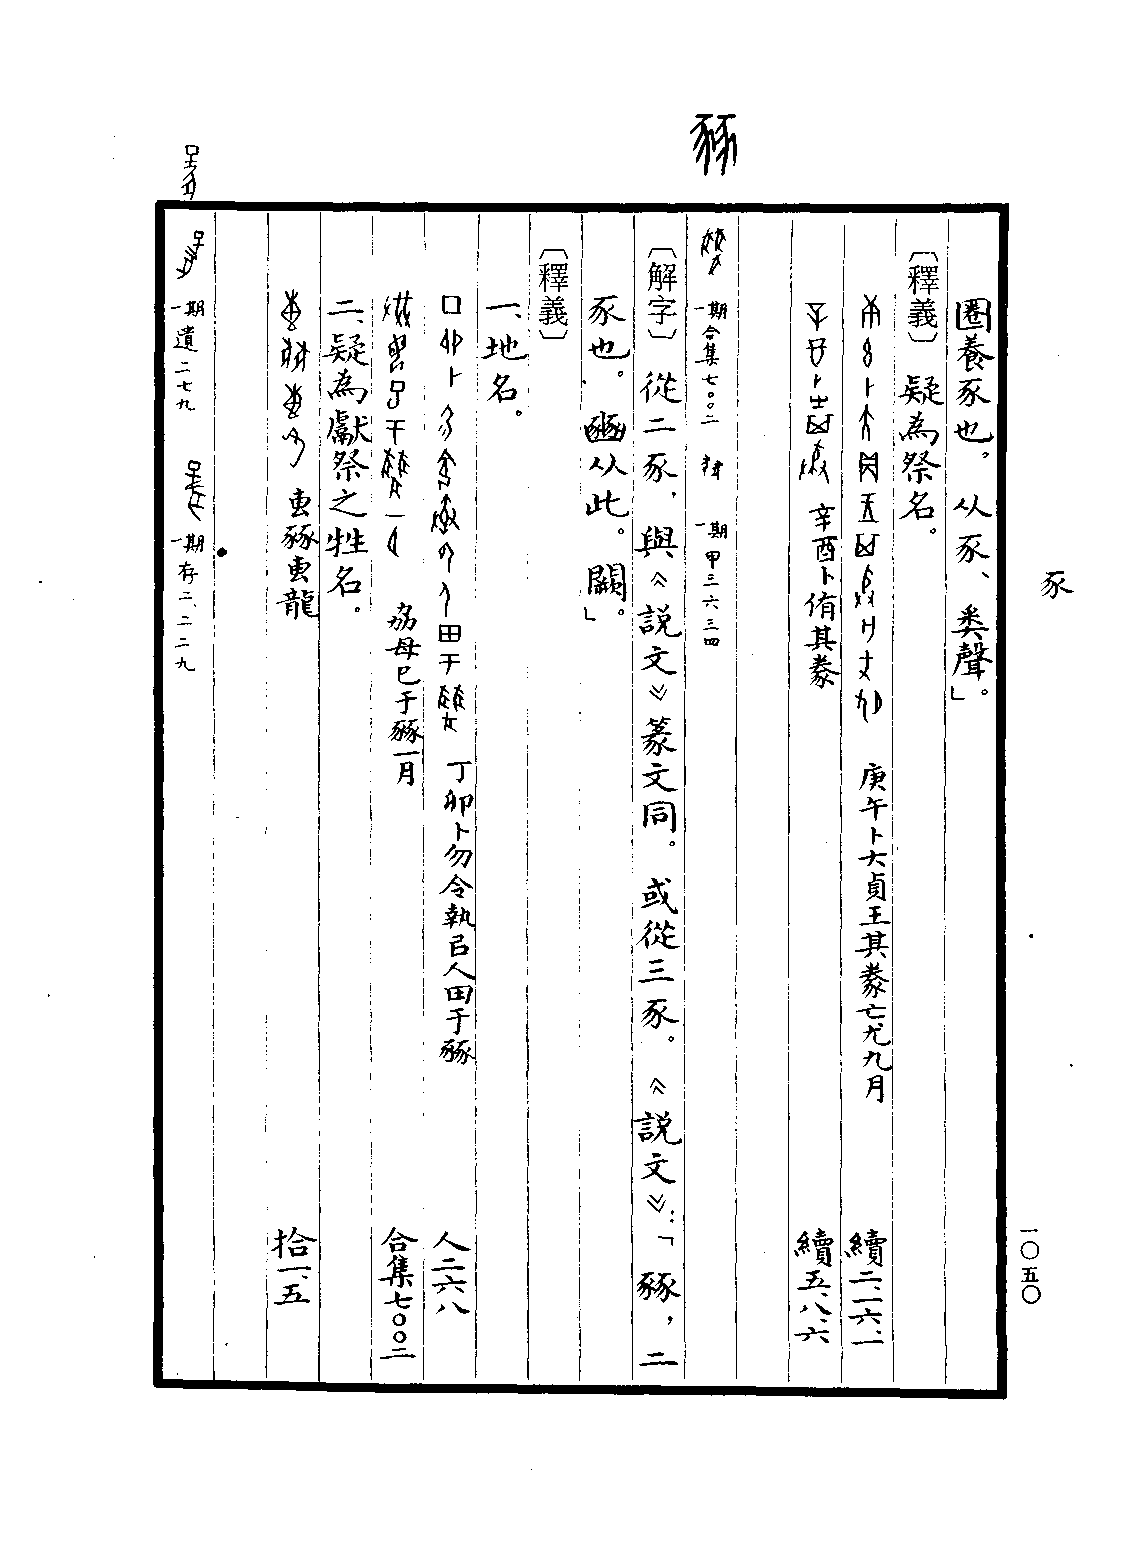 豩
豕
一〇五〇
圈養豕也。从豕、类聲」。
〔釋義〕疑為祭名。
庚午卜大貞王其豢亡尤九月 續二、一六、一
辛酉卜侑其豢 續五、八、六
一期合集七〇〇二 一期甲三六三四
〔解字〕從二豕，與《説文》篆文同。或從三豕。《説文》：「豩，二
豕也。豳从此。闕。」
〔釋義〕
一、地名。
丁卯卜勿令執㠯人田于豩 人二六八
母巳于豩一月 合集七〇〇二
二、疑為獻祭之牲名。
叀豩叀龍 拾一、五
一期遺二七九 一期存二、二二九